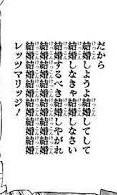 だから
結婚しようよ結婚してして
結婚しなきゃ結婚しなさい
結婚するべき結婚しやがれ
結婚結婚結婚結婚結婚結婚
結婚結婚結婚結婚結婚結婚
レッツマリッジ！